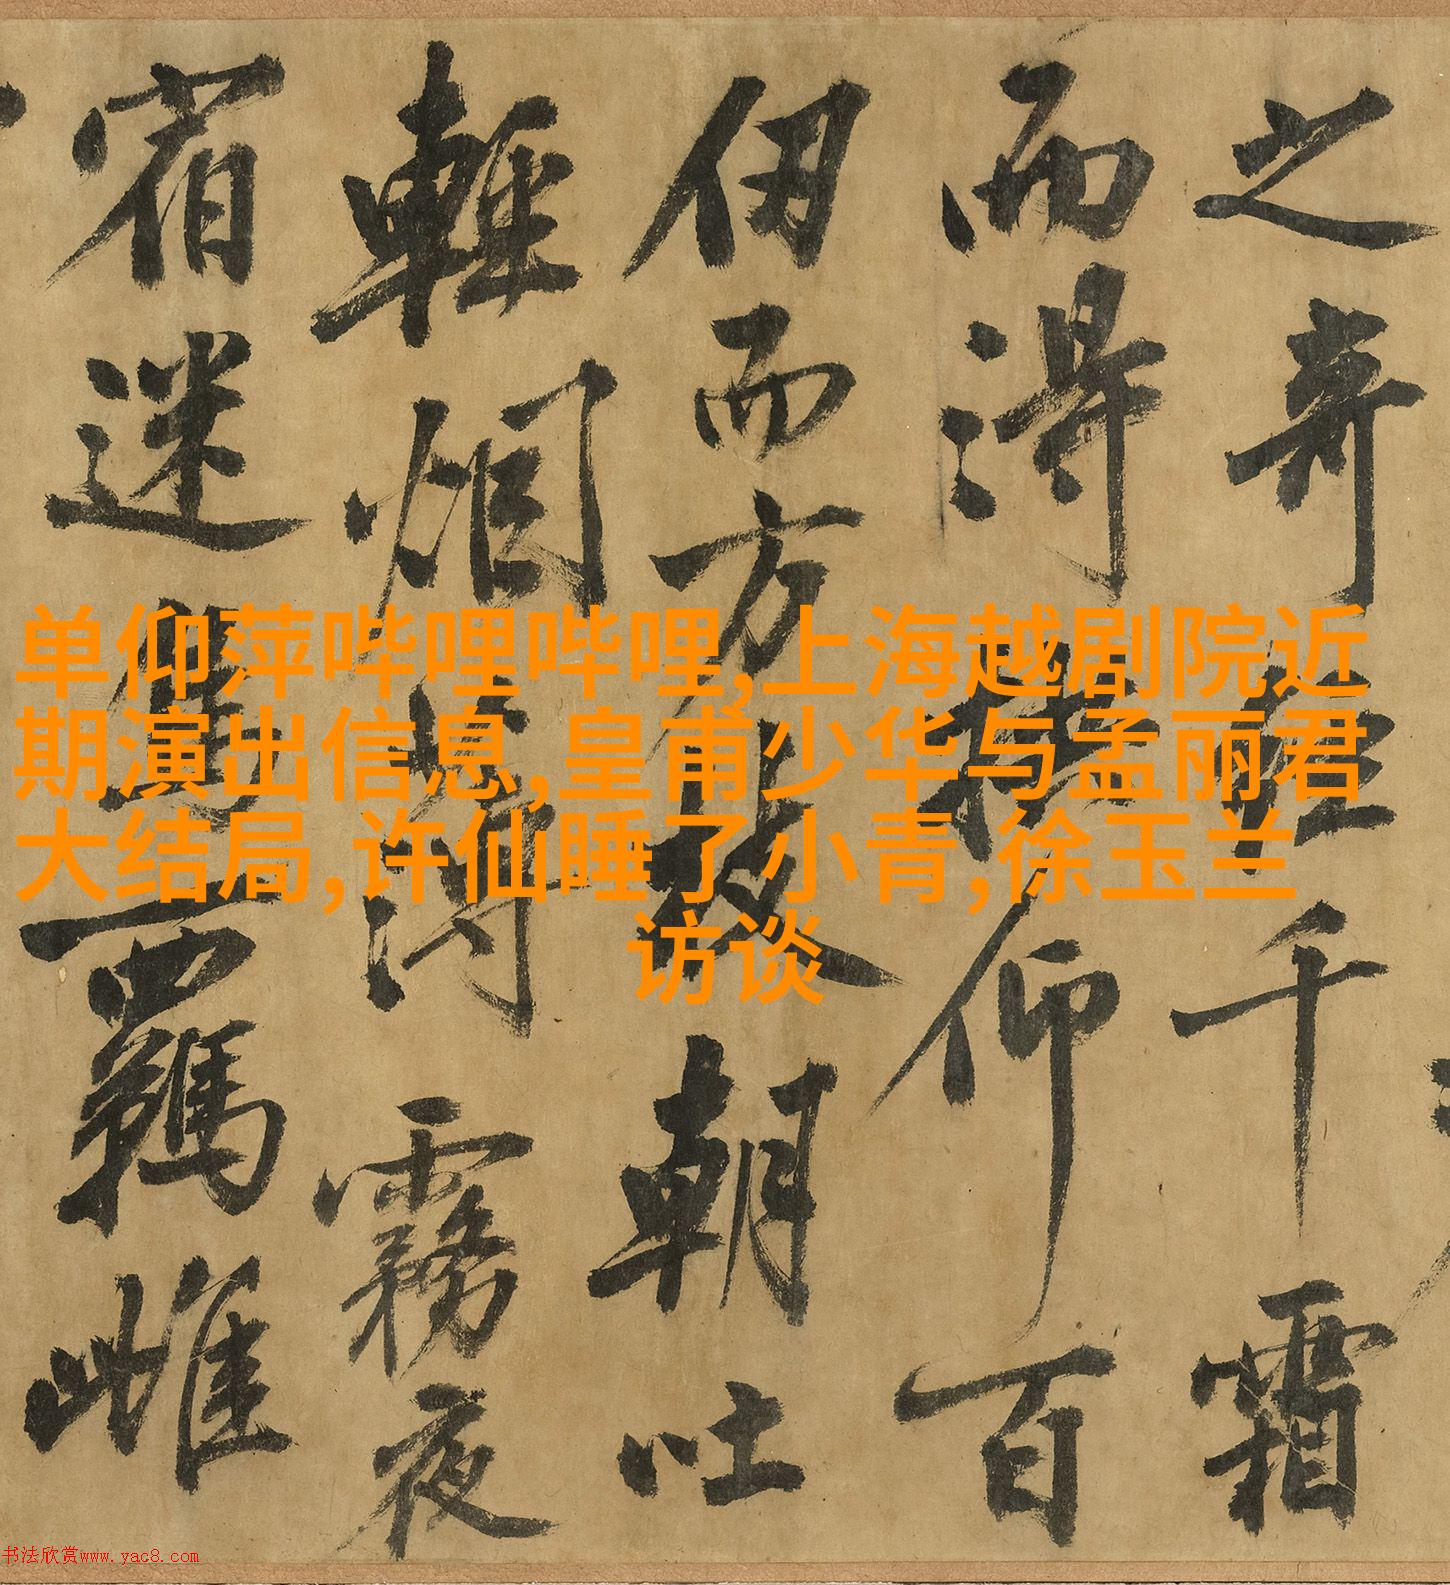 之奇千霜
而得仰百
伊而方朝吐
輕烟薄霧夜
宿迷鳥羈雌
单仰萍哔哩哔哩,上海越剧院近
期演出信息,皇甫少华与孟丽君
大结局,许仙睡了小青,徐玉兰
访谈
书法欣赏www.yac8.com